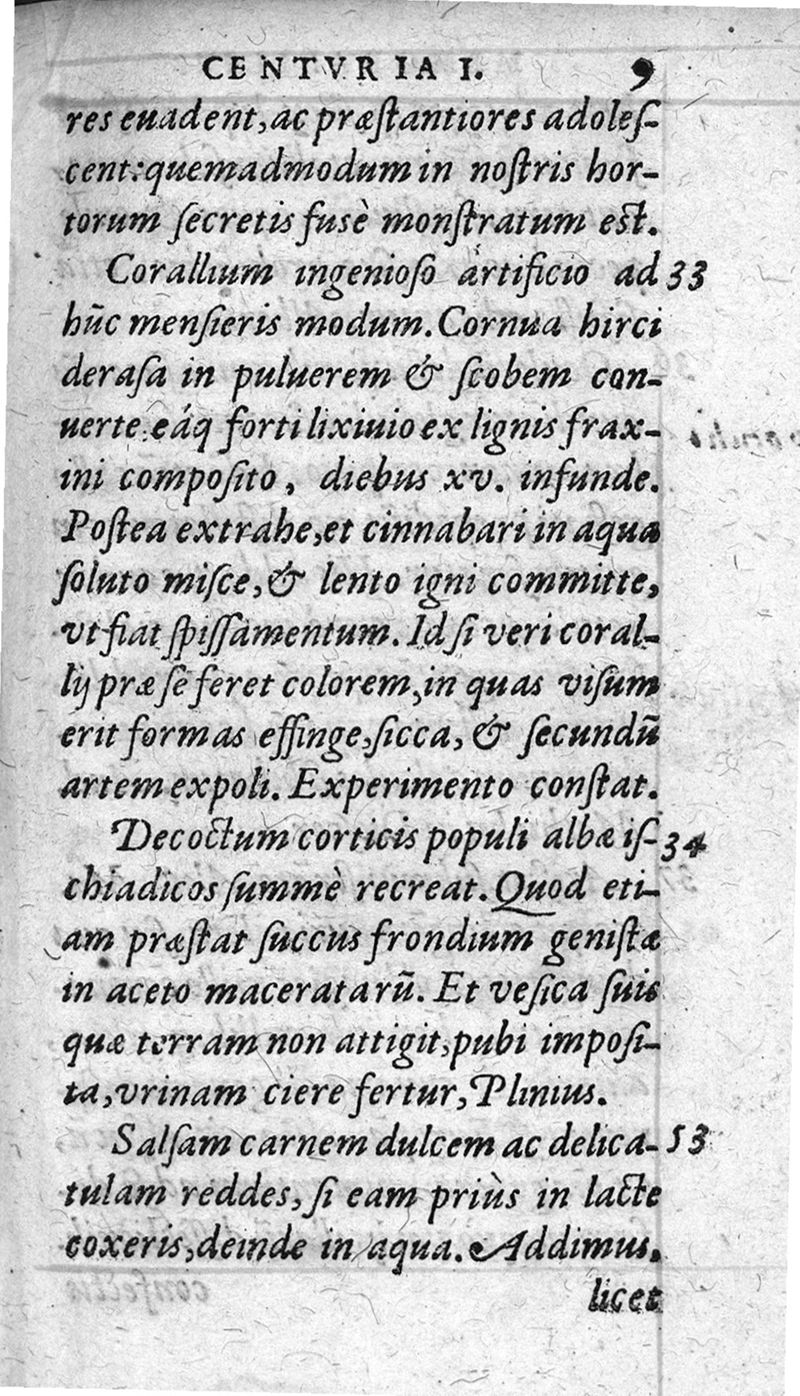 CENTVRIA I. 9
res euadent, ac præſtantiores adoleſ-
cent: quemadmodum in noſtris hor-
torum ſecretis fusè monſtratum eſt.
Corallium ingenioſo artificio ad 33
hūc menſieris modum. Cornua hirci
deraſa in puluerem & ſcobem con-
uerte: eáq forti lixiuio ex lignis frax-
ini compoſito, diebus xv. infunde.
Poſtea extrahe, et cinnabari in aqua
ſoluto miſce, & lento igni committe,
vt fiat ſpiſſamentum. Id ſi veri coral-
lij præ ſe feret colorem, in quas viſum
erit formas effinge, ſicca, & ſecundū
artem expoli. Experimento conſtat.
Decoctum corticis populi albæ iſ- 34
chiadicos ſummè recreat. Quod eti-
am præſtat ſuccus frondium geniſtæ
in aceto maceratarū. Et veſica ſuis
quæ terram non attigit, pubi impoſi-
ta, vrinam ciere fertur, Plinius.
Salſam carnem dulcem ac delica- 53
tulam reddes, ſi eam priùs in lacte
coxeris, deinde in aqua. Addimus,
licet